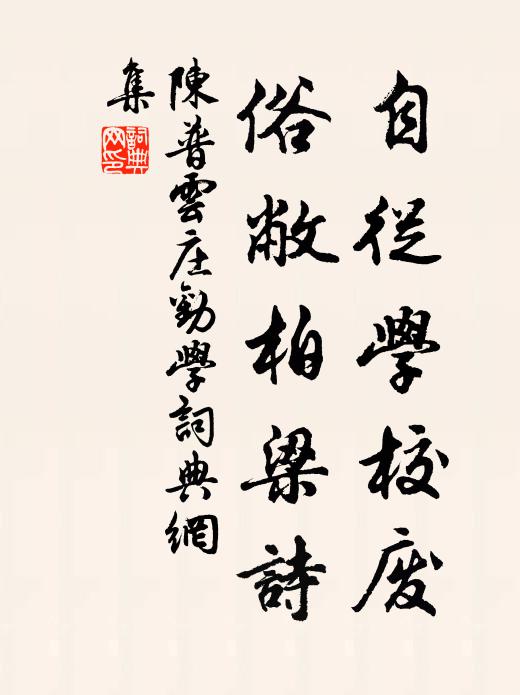 自從學校废
俗敝柏梁詩
陳普雲庄勸學詞典網
集
詞典
网印